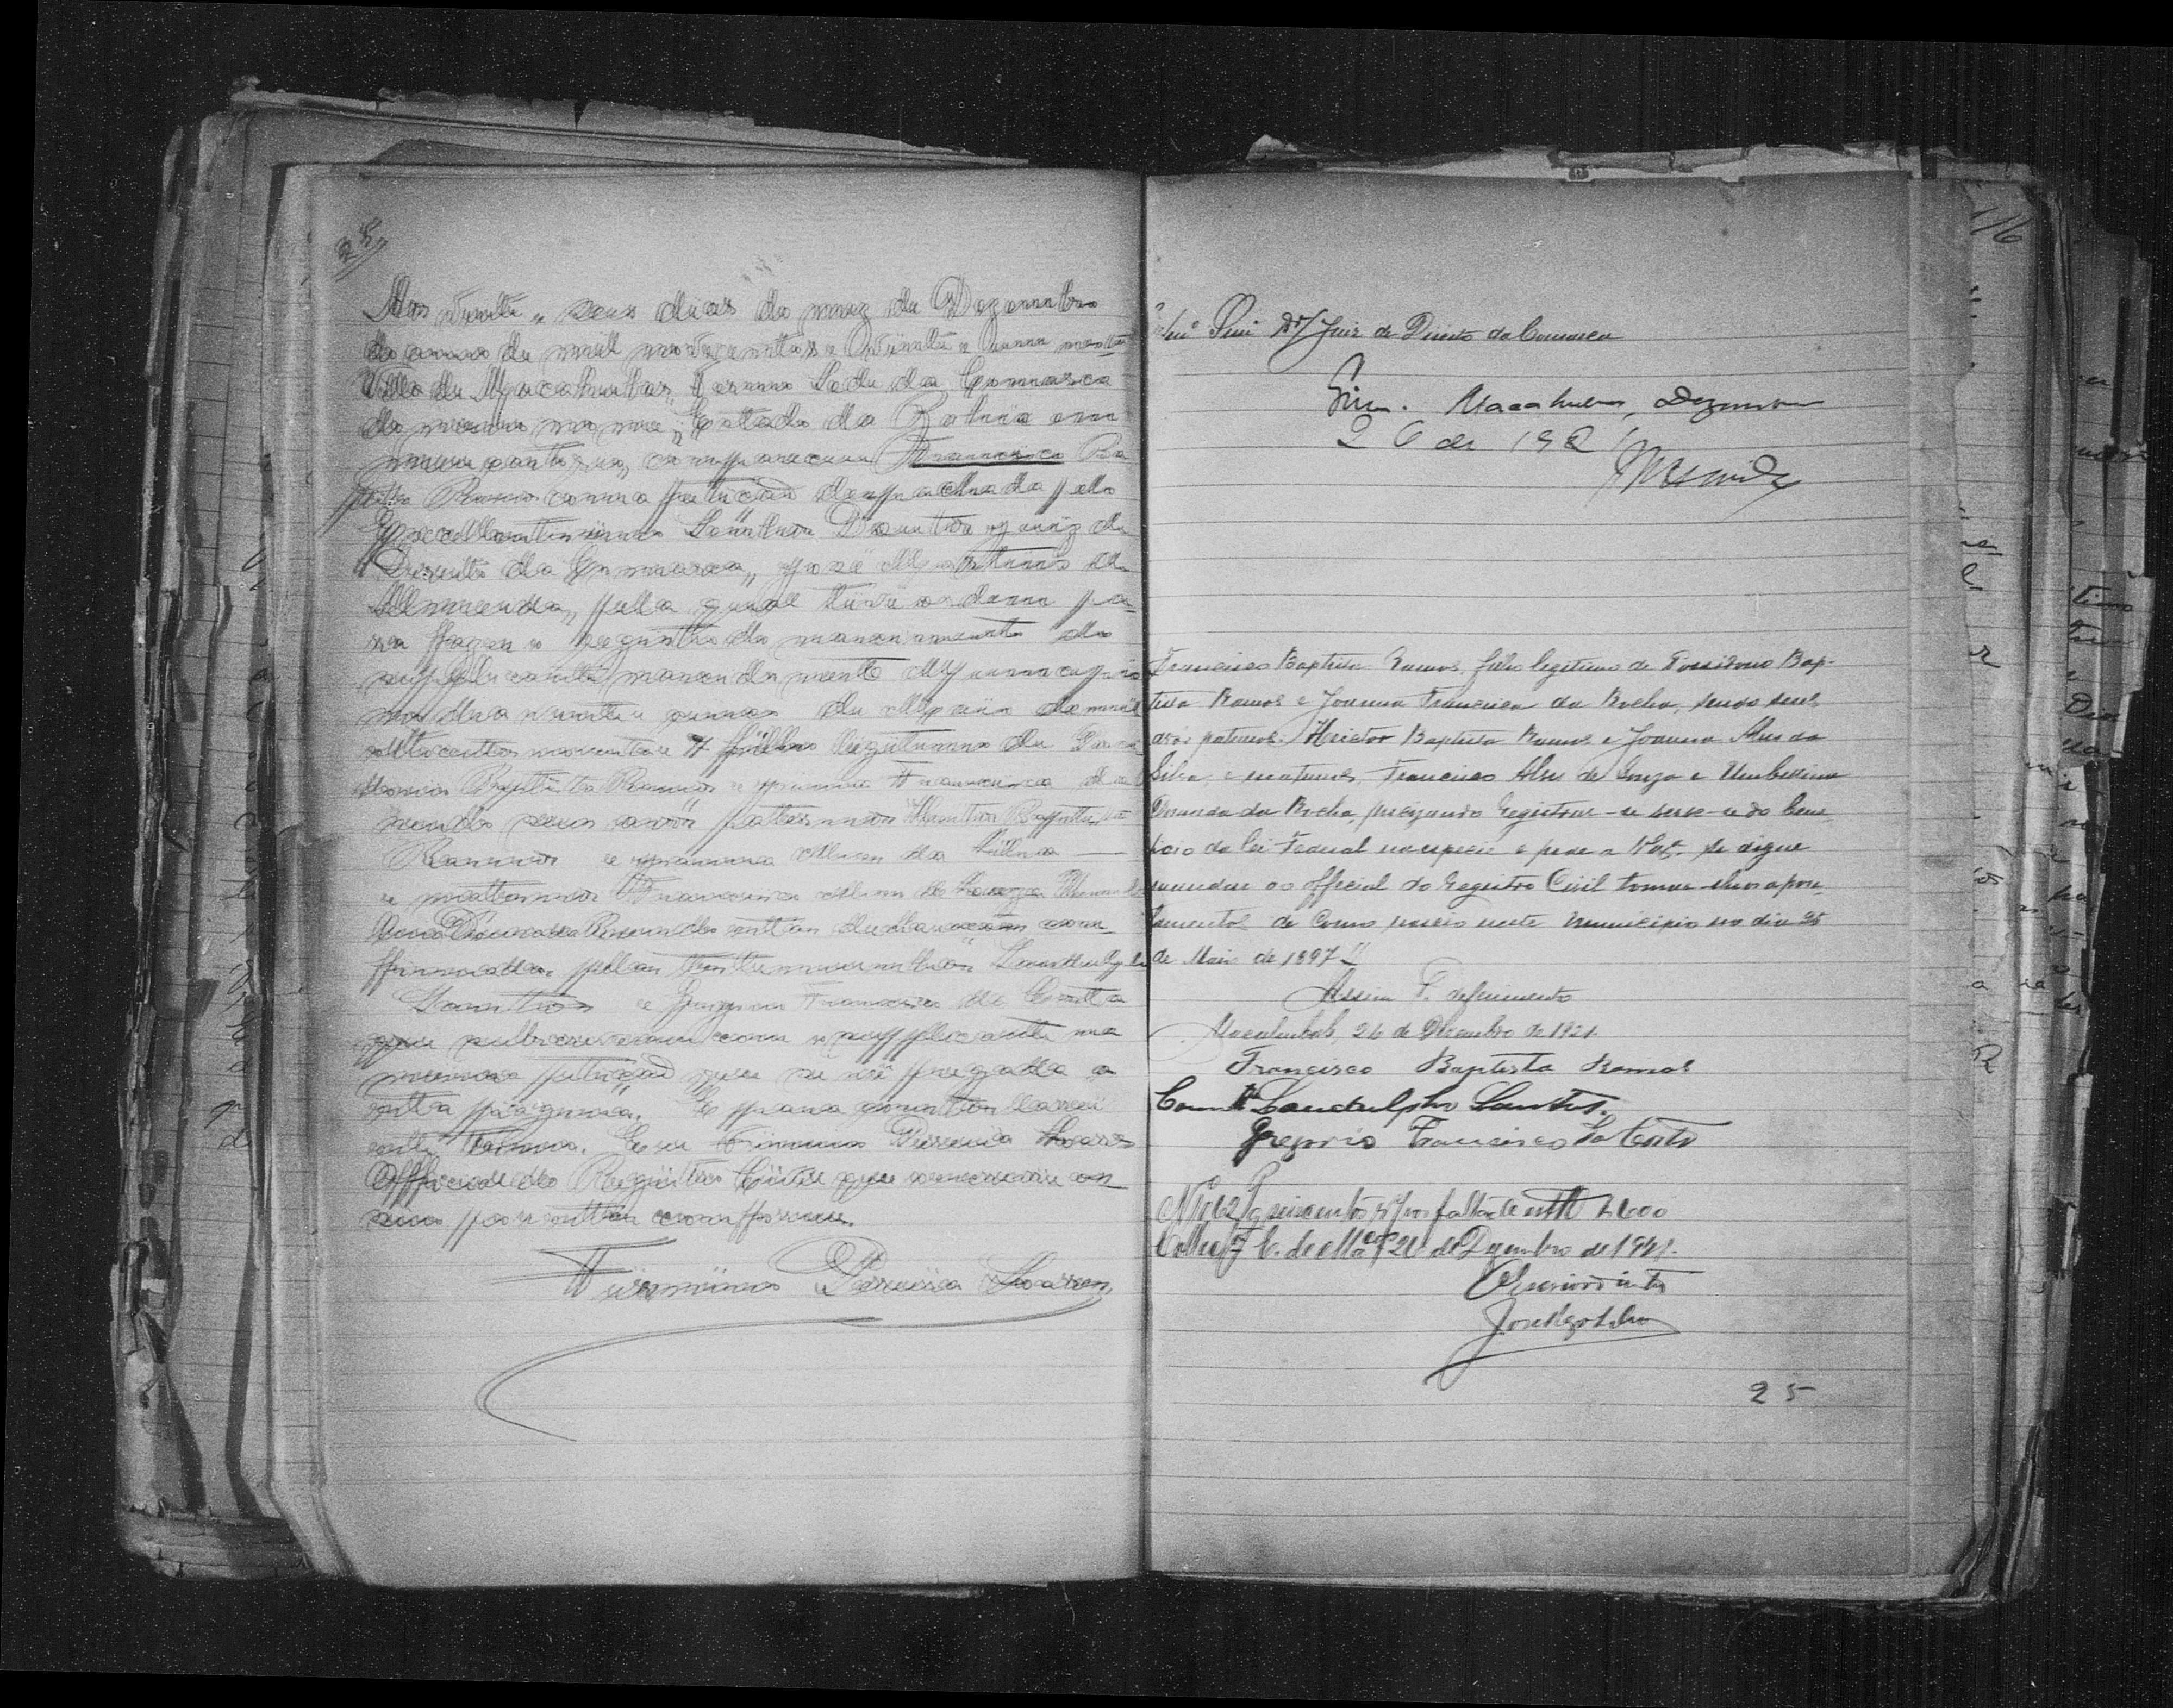 25
Aos vinte e seis dias do mez de Dezembro
do anno de mil novecentos e vinte e um nesta
Villa de Macahubas, Termo Sede da Comarca
do mesmo nome, Estado da Bahia em
meu cartorio, compareceu Francisco Ba
ptista Ramos com a petição despachada pelo
Excellentissimo Senhor Doutor Juiz de
Direito da Comarca, José Martins de
Almeida, pela qual tive ordem pa-
ra fazer o registro do nascimento do
supplicante nascido neste Municipio
no dia vinte e cinco de Maio de mil
oitocentos noventa e 7 filho legitimo de Possi
donio Baptista Ramos e Joanna Francisca da
sendo seus avós paternos Heitor Baptista
Ramos e Joanna Alves da Silva
e maternos Francisco Alves de Souza
da Rocha, sendo estas declarações con-
firmadas pelas testemunhas Landulpho
Santos e Gregorio Francisco da Costa
que subscreveram com o supplicante na
mesma petição que se vê pregada a
esta pagina. E para constar lavrei
este termo. Eu Firmino Pereira Soares
Official do Registro Civil que escrevi e as-
signo por estar conforme.
Firmino Pereira Soares
116
Exmo Snr. Dr. Juiz de Direito da Comarca
Sim. Macahubas, Dezembro
26 de 1921
Francisco Baptista Ramos, filho legitimo de Possidonio Bap-
tista Ramos e Joanna Francisca da Rocha, sendo seus
avós paternos, Heictor Baptista Ramos e Joanna Alves da
Silva, e maternos, Francisco Alves de Souza e Umbelina
da Rocha, precizando registrar-se serve-se do bene-
ficio da lei Federal na especie e pede a V. Exª. se digne
mandar ao official do registro Civil tomar-lhe os aponta-
mentos de como nasceo neste municipio no dia 25
de Maio de 1897.
Assim P. deferimento
Macahubas, 26 de Dezembro de 1921
Francisco Baptista Ramos
Landulpho Santos.
Gregorio Francisco da Costa
seiscentos rs por falta de estª $600
de Dezembro de 1921.
25